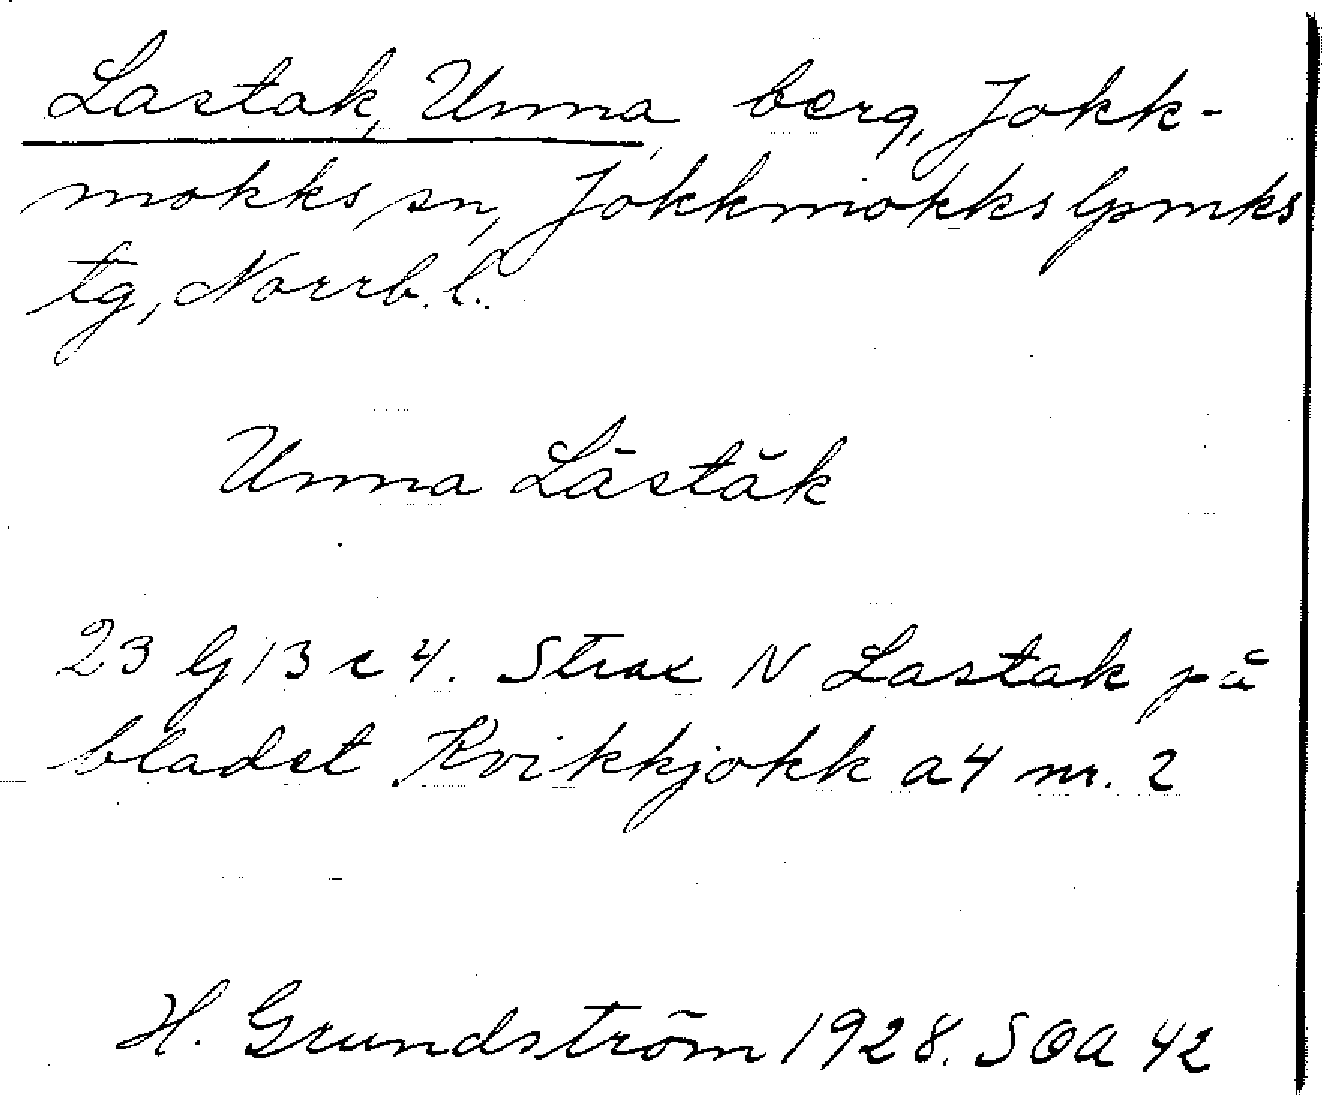 Lastak, Unna, berg, Jokk-
mokks sn, Jokkmokks lpmks
tg, Norrb. l.
Unna Lāstăk
23 G 13 c 4. Strax N Lastak på
bladet Kvikkjokk a4 nr. 2
H. Grundström 1928. SOA 42